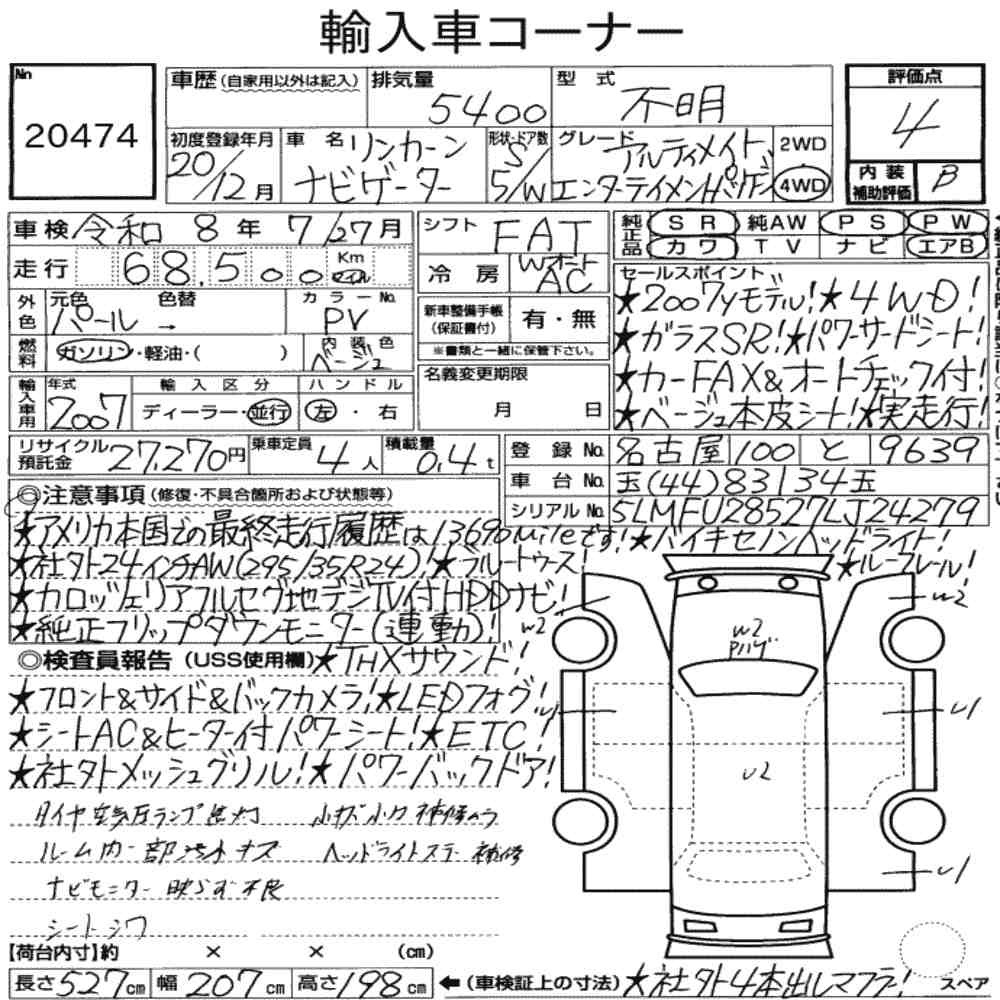 輸入車コーナー
No
20474
車歴(自家用以外は記入) 排気量 5400 型式 不明
評価点 4
初度登録年月 20/12月 車名 リンカーン ナビゲーター 形状・ドア数 S/5/W グレード アルティメイト エンターテイメントパッケージ 2WD 4WD
内装補助評価 B
車検 令和 8年 7/27月 シフト FAT
純正品 SR 純AW PS PW
カワ TV ナビ エアB
走行 68,500 Km マイル 冷房 Wオート AC
外色 元色 パール → 色替 カラーNo. PV
新車整備手帳(保証書付) 有・無
※書類と一緒に保管下さい。
燃料 ガソリン・軽油・( ) 内装色 ベージュ
セールスポイント
★2007yモデル!★4WD!
★ガラスSR!★パワーサードシート!
★カーFAX&オートチェック付!
★ベージュ本皮シート!★実走行!
輸入車用 年式 2007 輸入区分 ディーラー・並行 ハンドル 左・右
名義変更期限 月 日
リサイクル預託金 27,270円 乗車定員 4人 積載量 0.4t
登録No. 名古屋 100 と 9639
車台No. 玉(44)83134玉
シリアルNo. 5LMFU28527LJ24279
◎注意事項(修復・不具合箇所および状態等)
★アメリカ本国での最終走行履歴は13690mileです!★バイキセノンヘッドライト!
★社外24インチAW(295/35R24)!★ブルートゥース! ★ルーフレール!
★カロッツェリアフルセグ地デジTV付HDDナビ!
★純正フリップダウンモニター(連動)!
◎検査員報告(USS使用欄)★THXサウンド!
★フロント&サイド&バックカメラ!★LEDフォグ!
★シートAC&ヒーター付パワーシート!★ETC!
★社外メッシュグリル!★パワーバックドア!
タイヤ空気圧ランプ点灯 小キズ小凹補修ムラ
ルーム内一部汚れキズ ヘッドライトステー補修
ナビモニター映らず不良
シートシワ
W2
W2
W2
U1
U1
U2
U1
【荷台内寸】約 × × (cm)
長さ527cm 幅207cm 高さ198cm ←(車検証上の寸法)★社外4本出しマフラー!
スペア